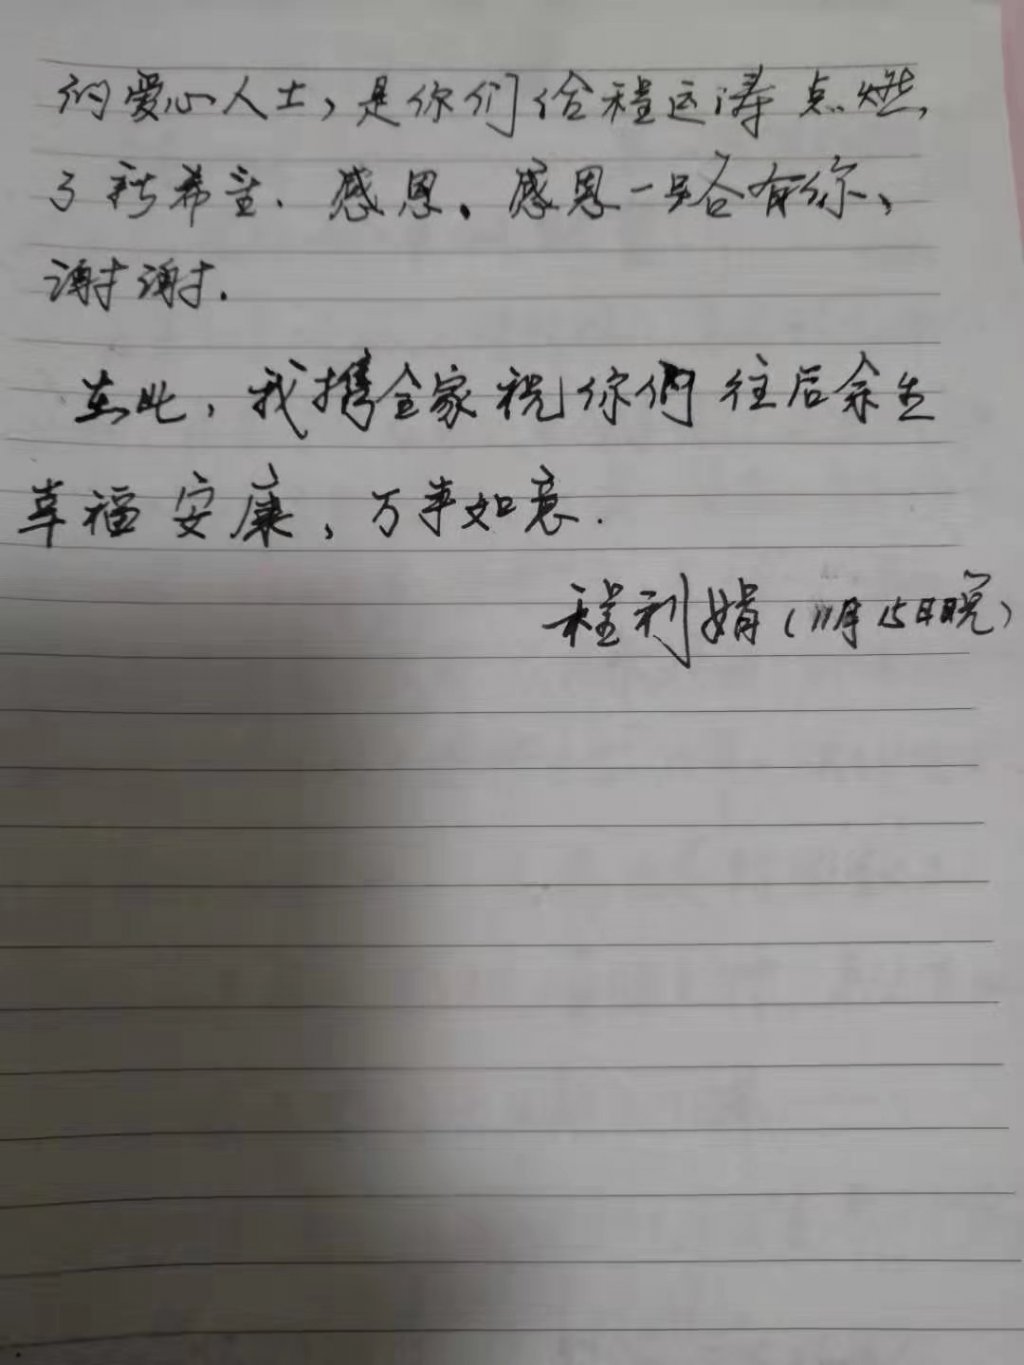 的爱心人士，是你们给程运涛点燃，
了新希望．感恩。感恩一路有你、
谢谢．
在此，我携全家祝你们往后余生
幸福安康，万事如意．
程利娟（11月15日晚）